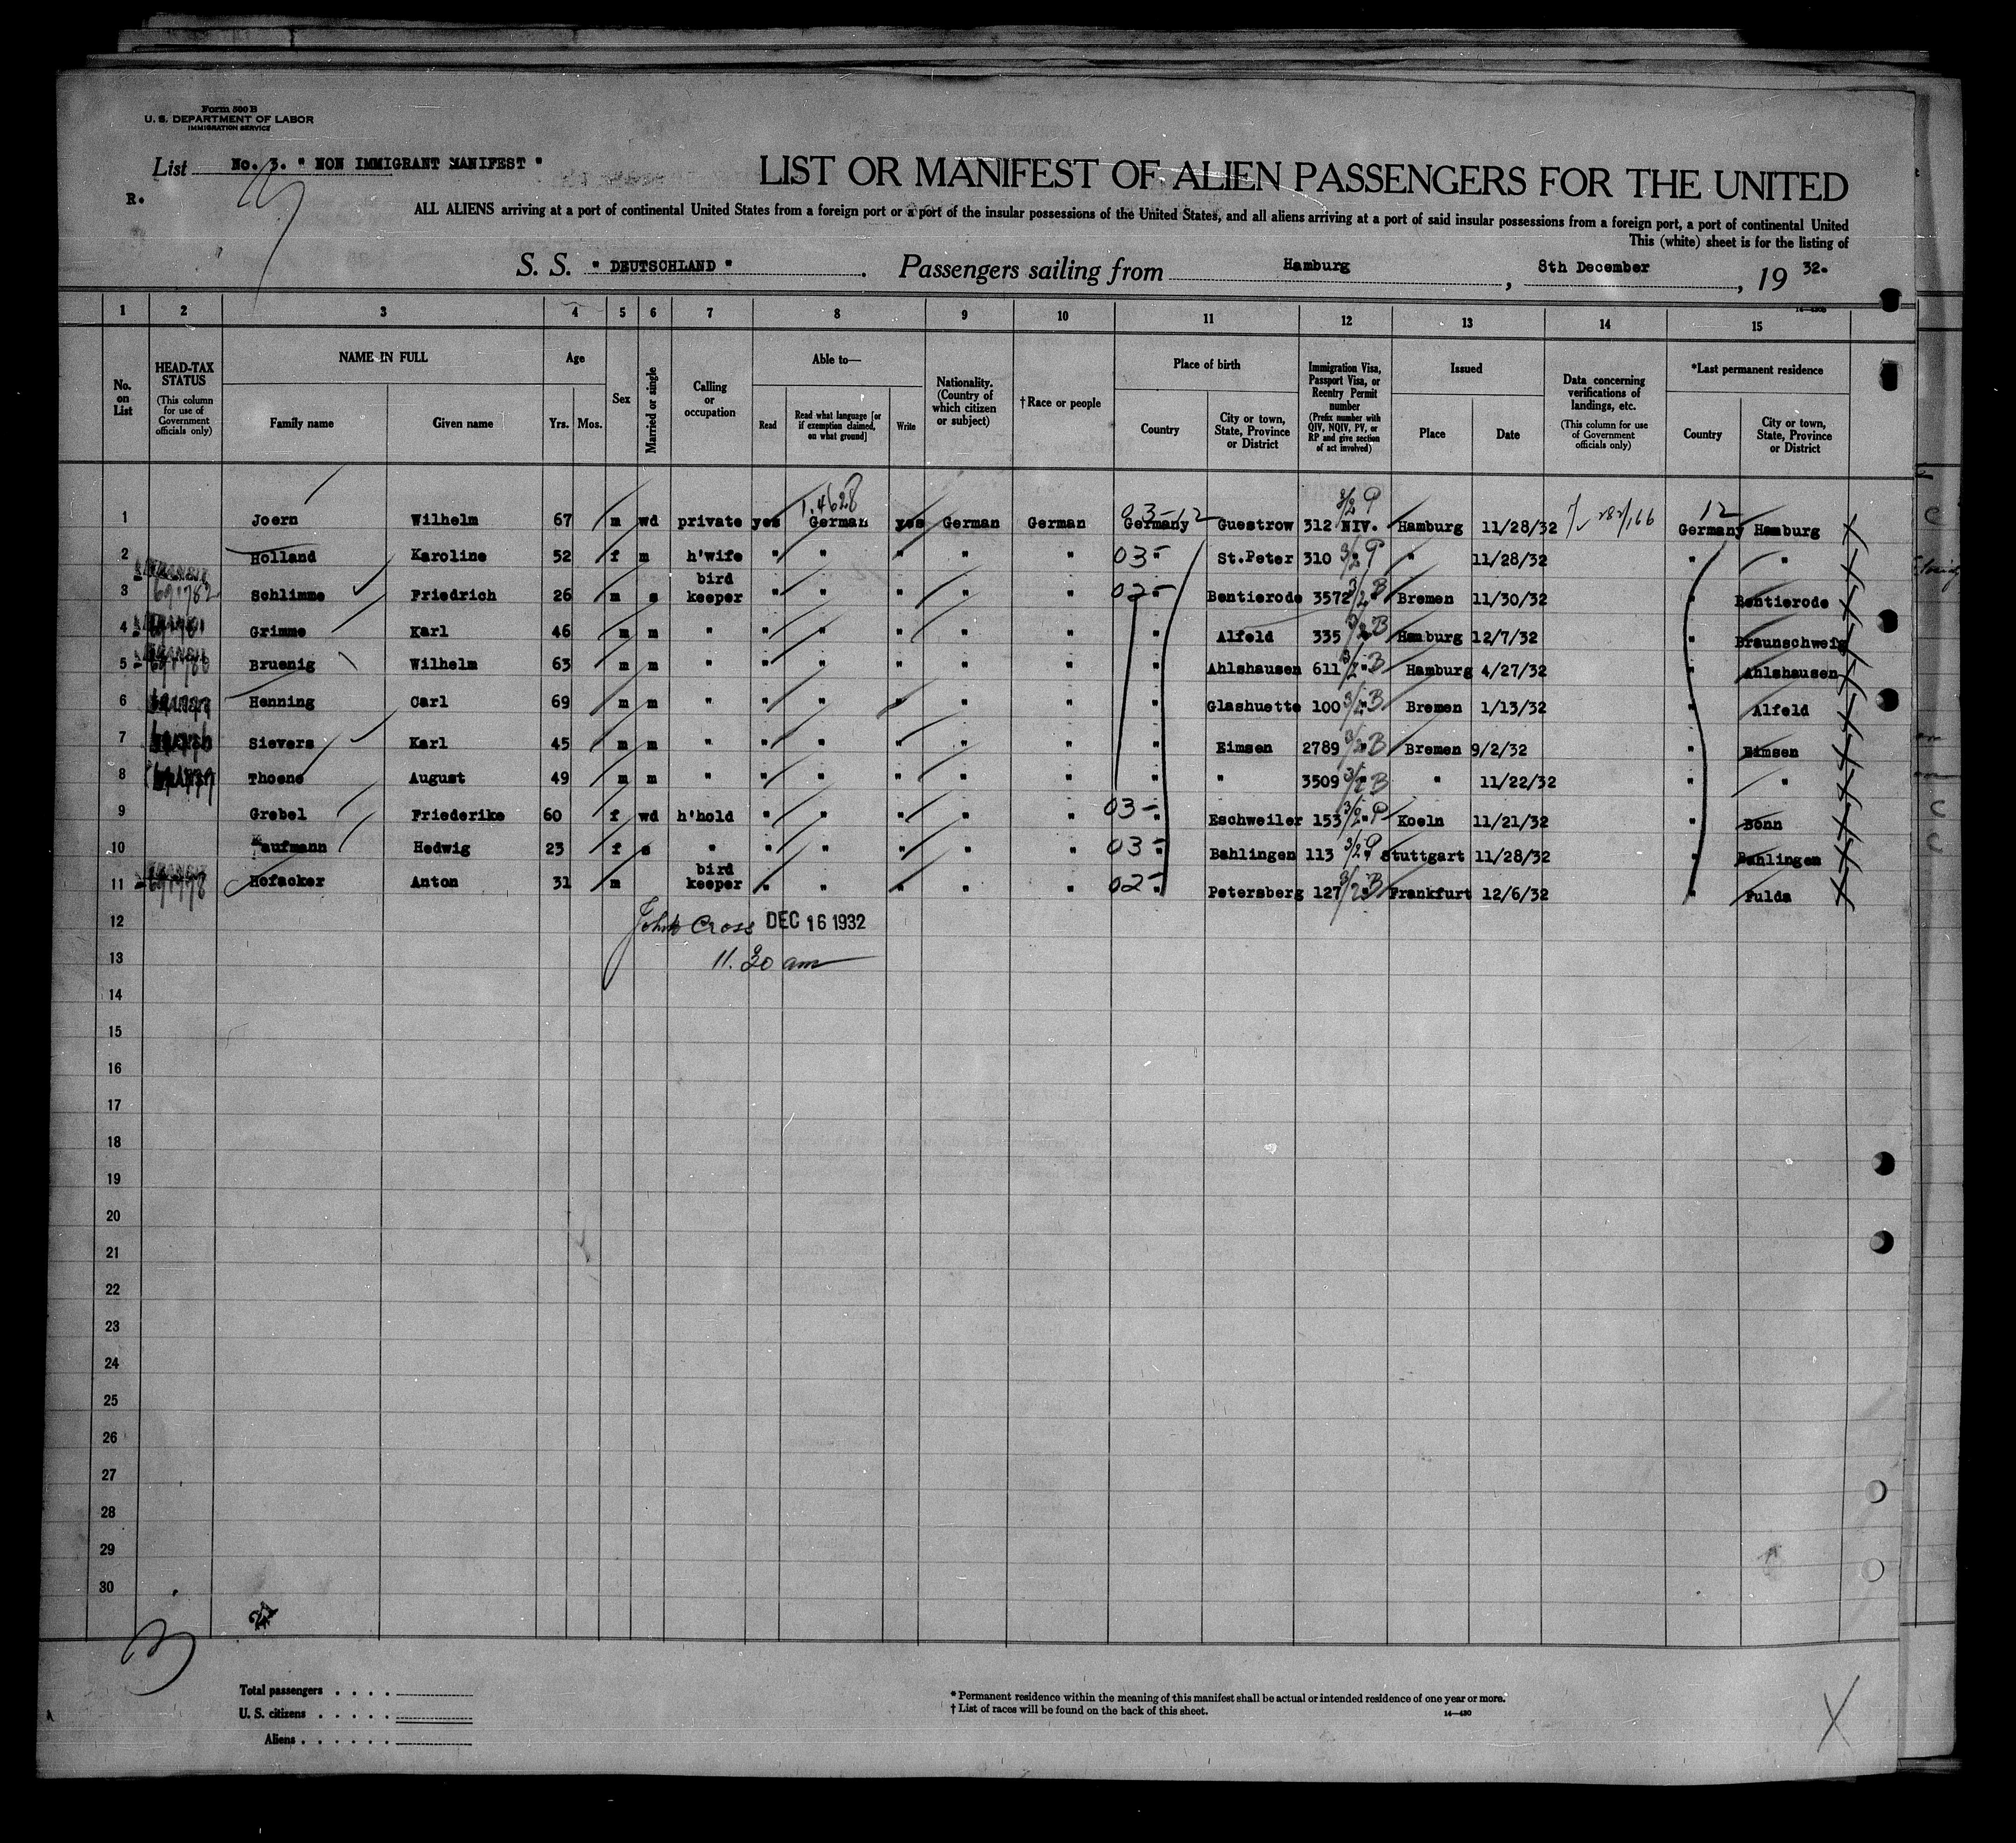 Form 500 B
U. S. DEPARTMENT OF LABOR
IMMIGRATION SERVICE
List No. 3. " NON IMMIGRANT MANIFEST "
R.
LIST OR MANIFEST OF ALIEN PASSENGERS FOR THE UNITED
ALL ALIENS arriving at a port of continental United States from a foreign port or a port of the insular possessions of the United States, and all aliens arriving at a port of said insular possessions from a foreign port, a port of continental United
This (white) sheet is for the listing of
S. S. " DEUTSCHLAND " . Passengers sailing from Hamburg , 8th December , 19 32.
1 2 3 4 5 6 7 8 9 10 11 12 13 14 15
No. on List
HEAD-TAX STATUS (This column for use of Government officials only)
NAME IN FULL Family name Given name
Age Yrs. Mos.
Sex
Married or single
Calling or occupation
Able to— Read Read what language [or if exemption claimed, on what ground] Write
Nationality. (Country of which citizen or subject)
†Race or people
Place of birth Country City or town, State, Province or District
Immigration Visa, Passport Visa, or Reentry Permit number (Prefix number with QIV, NQIV, PV, or RP and give section of act involved)
Issued Place Date
Data concerning verifications of landings, etc. (This column for use of Government officials only)
*Last permanent residence Country City or town, State, Province or District
1 Joern Wilhelm 67 m wd private yes German yes German German Germany Guestrow 312 NIV. Hamburg 11/28/32 Germany Hamburg
2 Holland Karoline 52 f m h'wife " " " " " 03- " St.Peter 310 3/2 P " 11/28/32 " "
3 Schlimme Friedrich 26 m s bird keeper " " " " " 02- " Bentierode 3572 3/2 B Bremen 11/30/32 " Bentierode
4 Grimme Karl 46 m m " " " " " " " Alfeld 335 3/2 B Hamburg 12/7/32 " Braunschweig
5 Bruenig Wilhelm 63 m m " " " " " " " Ahlshausen 611 3/2 B Hamburg 4/27/32 " Ahlshausen
6 Henning Carl 69 m m " " " " " " " Glashuette 100 3/2 B Bremen 1/13/32 " Alfeld
7 Sievers Karl 45 m m " " " " " " " Eimsen 2789 3/2 B Bremen 9/2/32 " Eimsen
8 Thoene August 49 m m " " " " " " " " 3509 3/2 B " 11/22/32 " "
9 Grebel Friederike 60 f wd h'hold " " " " " 03- " Eschweiler 153 3/2 P Koeln 11/21/32 " Bonn
10 Kaufmann Hedwig 23 f s " " " " " " 03- " Bahlingen 113 3/2 P Stuttgart 11/28/32 " Bahlingen
11 Hofacker Anton 31 m bird keeper " " " " " 02- " Petersberg 127 3/2 B Frankfurt 12/6/32 " Fulda
12 John Cross DEC 16 1932
13 11.30 am
14
15
16
17
18
19
20
21
22
23
24
25
26
27
28
29
30
Total passengers . . . .
U. S. citizens . . . . .
Aliens . . . . . .
* Permanent residence within the meaning of this manifest shall be actual or intended residence of one year or more.
† List of races will be found on the back of this sheet.
14—430